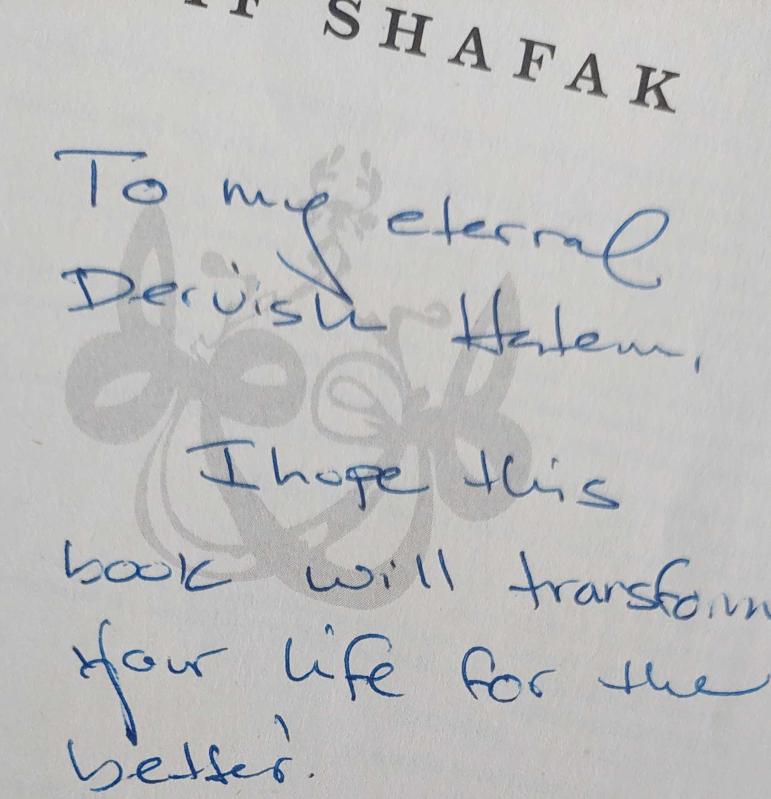 IF SHAFAK
To my eternal
Dervish Hatem,
I hope this
book will transform
your life for the
better.